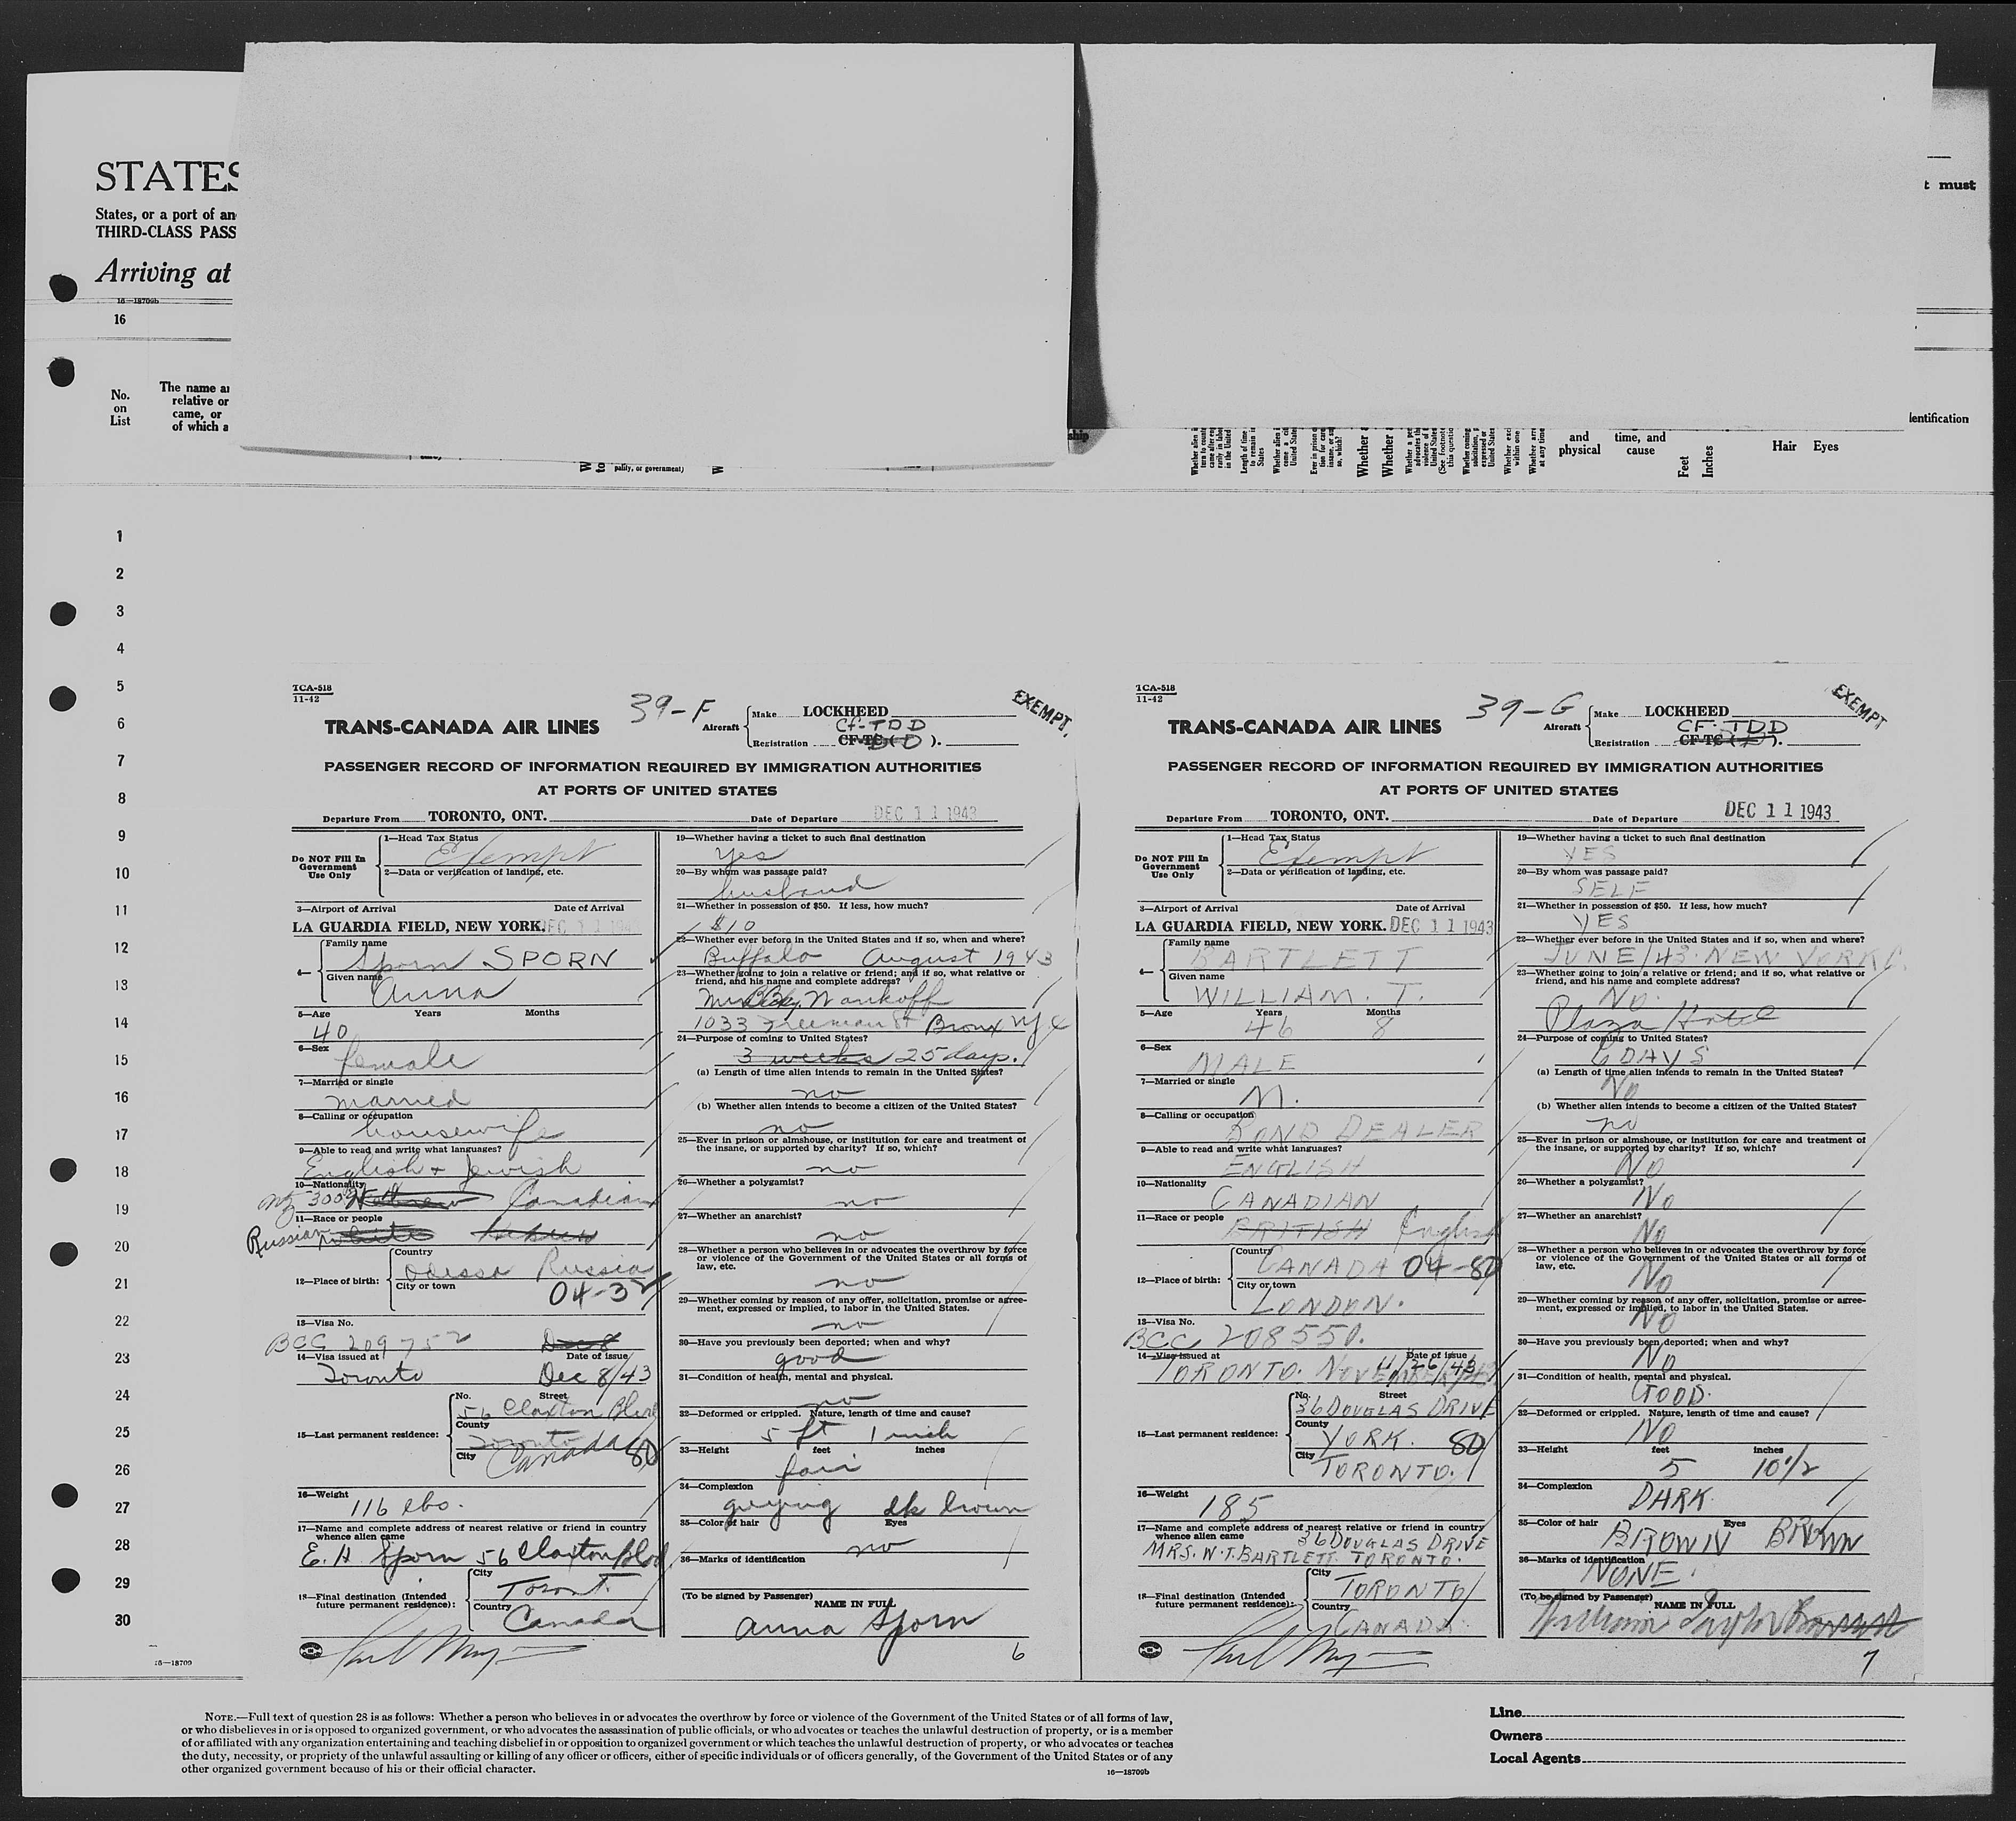 STATES
States, or a port of an
THIRD-CLASS PASS
Arriving at
16—18709b
16
No. on List
The name an
relative or
came, or
of which a
pality, or government)
t must
dentification
and physical
time, and cause
Feet
Inches
Hair Eyes
1
2
3
4
5
6
7
8
9
10
11
12
13
14
15
16
17
18
19
20
21
22
23
24
25
26
27
28
29
30
16—18709
TCA-518
11-42
39-F
EXEMPT.
TRANS-CANADA AIR LINES
Aircraft
Make LOCKHEED
CF-TDD
Registration CF-TC ( D ).
PASSENGER RECORD OF INFORMATION REQUIRED BY IMMIGRATION AUTHORITIES
AT PORTS OF UNITED STATES
Departure From TORONTO, ONT. Date of Departure DEC 11 1943
Do NOT Fill In Government Use Only
1—Head Tax Status
Exempt
2—Data or verification of landing, etc.
3—Airport of Arrival Date of Arrival
LA GUARDIA FIELD, NEW YORK. DEC 11 194
4— Family name
Sporn SPORN
Given name
Anna
5—Age Years Months
40
6—Sex
female
7—Married or single
married
8—Calling or occupation
housewife
9—Able to read and write what languages?
English + Jewish
10—Nationality
Canadian
11—Race or people
Russian white Hebrew
12—Place of birth:
Country
Odessa Russia
City or town
04-32
13—Visa No.
BCC 209752 Dec 8
14—Visa issued at Date of issue
Toronto Dec 8/43
15—Last permanent residence:
No. Street
56 Claxton Blvd
County
Toronto
City
Canada 80
16—Weight
116 lbs.
17—Name and complete address of nearest relative or friend in country
whence alien came
E. H. Sporn 56 Claxton Blvd
18—Final destination (Intended future permanent residence):
City
Toront.
Country
Canada
19—Whether having a ticket to such final destination
yes
20—By whom was passage paid?
husband
21—Whether in possession of $50. If less, how much?
$10
22—Whether ever before in the United States and if so, when and where?
Buffalo August 1943
23—Whether going to join a relative or friend; and if so, what relative or
friend, and his name and complete address?
Wankoff
1033 Freeman St Bronx NYC
24—Purpose of coming to United States?
3 weeks 25 days.
(a) Length of time alien intends to remain in the United States?
no
(b) Whether alien intends to become a citizen of the United States?
no
25—Ever in prison or almshouse, or institution for care and treatment of
the insane, or supported by charity? If so, which?
no
26—Whether a polygamist?
no
27—Whether an anarchist?
no
28—Whether a person who believes in or advocates the overthrow by force
or violence of the Government of the United States or all forms of
law, etc.
no
29—Whether coming by reason of any offer, solicitation, promise or agree-
ment, expressed or implied, to labor in the United States.
no
30—Have you previously been deported; when and why?
good
31—Condition of health, mental and physical.
no
32—Deformed or crippled. Nature, length of time and cause?
5 ft 1 inch
33—Height feet inches
fair
34—Complexion
greying dk brown
35—Color of hair Eyes
no
36—Marks of identification
(To be signed by Passenger)
NAME IN FULL
Anna Sporn
6
TCA-518
11-42
39-G
EXEMPT
TRANS-CANADA AIR LINES
Aircraft
Make LOCKHEED
CF-TDD
Registration CF-TC ( ).
PASSENGER RECORD OF INFORMATION REQUIRED BY IMMIGRATION AUTHORITIES
AT PORTS OF UNITED STATES
Departure From TORONTO, ONT. Date of Departure DEC 11 1943
Do NOT Fill In Government Use Only
1—Head Tax Status
Exempt
2—Data or verification of landing, etc.
3—Airport of Arrival Date of Arrival
LA GUARDIA FIELD, NEW YORK. DEC 11 1943
4— Family name
BARTLETT
Given name
WILLIAM. T.
5—Age Years Months
46 8
6—Sex
MALE
7—Married or single
M.
8—Calling or occupation
BOND DEALER
9—Able to read and write what languages?
ENGLISH
10—Nationality
CANADIAN
11—Race or people
BRITISH English
12—Place of birth:
Country
CANADA 04-80
City or town
LONDON.
13—Visa No.
BCC 208550.
14—Visa issued at Date of issue
TORONTO. NOVEMBER 11/26/43
15—Last permanent residence:
No. Street
36 DOUGLAS DRIVE
County
YORK. 80
City
TORONTO.
16—Weight
185
17—Name and complete address of nearest relative or friend in country
whence alien came
36 DOUGLAS DRIVE
MRS. W. T. BARTLETT TORONTO.
18—Final destination (Intended future permanent residence):
City
TORONTO
Country
CANADA.
19—Whether having a ticket to such final destination
YES
20—By whom was passage paid?
SELF
21—Whether in possession of $50. If less, how much?
YES
22—Whether ever before in the United States and if so, when and where?
JUNE/43. NEW YORK
23—Whether going to join a relative or friend; and if so, what relative or
friend, and his name and complete address?
No.
Plaza Hotel
24—Purpose of coming to United States?
6 DAYS
(a) Length of time alien intends to remain in the United States?
No
(b) Whether alien intends to become a citizen of the United States?
no
25—Ever in prison or almshouse, or institution for care and treatment of
the insane, or supported by charity? If so, which?
No
26—Whether a polygamist?
No
27—Whether an anarchist?
No
28—Whether a person who believes in or advocates the overthrow by force
or violence of the Government of the United States or all forms of
law, etc.
No
29—Whether coming by reason of any offer, solicitation, promise or agree-
ment, expressed or implied, to labor in the United States.
No
30—Have you previously been deported; when and why?
No
31—Condition of health, mental and physical.
GOOD.
32—Deformed or crippled. Nature, length of time and cause?
NO
33—Height feet inches
5 10 1/2
34—Complexion
DARK.
35—Color of hair Eyes
BROWN BROWN
36—Marks of identification
NONE.
(To be signed by Passenger)
NAME IN FULL
William Taylor Bartlett
7
NOTE.—Full text of question 28 is as follows: Whether a person who believes in or advocates the overthrow by force or violence of the Government of the United States or of all forms of law,
or who disbelieves in or is opposed to organized government, or who advocates the assassination of public officials, or who advocates or teaches the unlawful destruction of property, or is a member
of or affiliated with any organization entertaining and teaching disbelief in or opposition to organized government or which teaches the unlawful destruction of property, or who advocates or teaches
the duty, necessity, or propriety of the unlawful assaulting or killing of any officer or officers, either of specific individuals or of officers generally, of the Government of the United States or of any
other organized government because of his or their official character.
16—18709b
Line
Owners
Local Agents